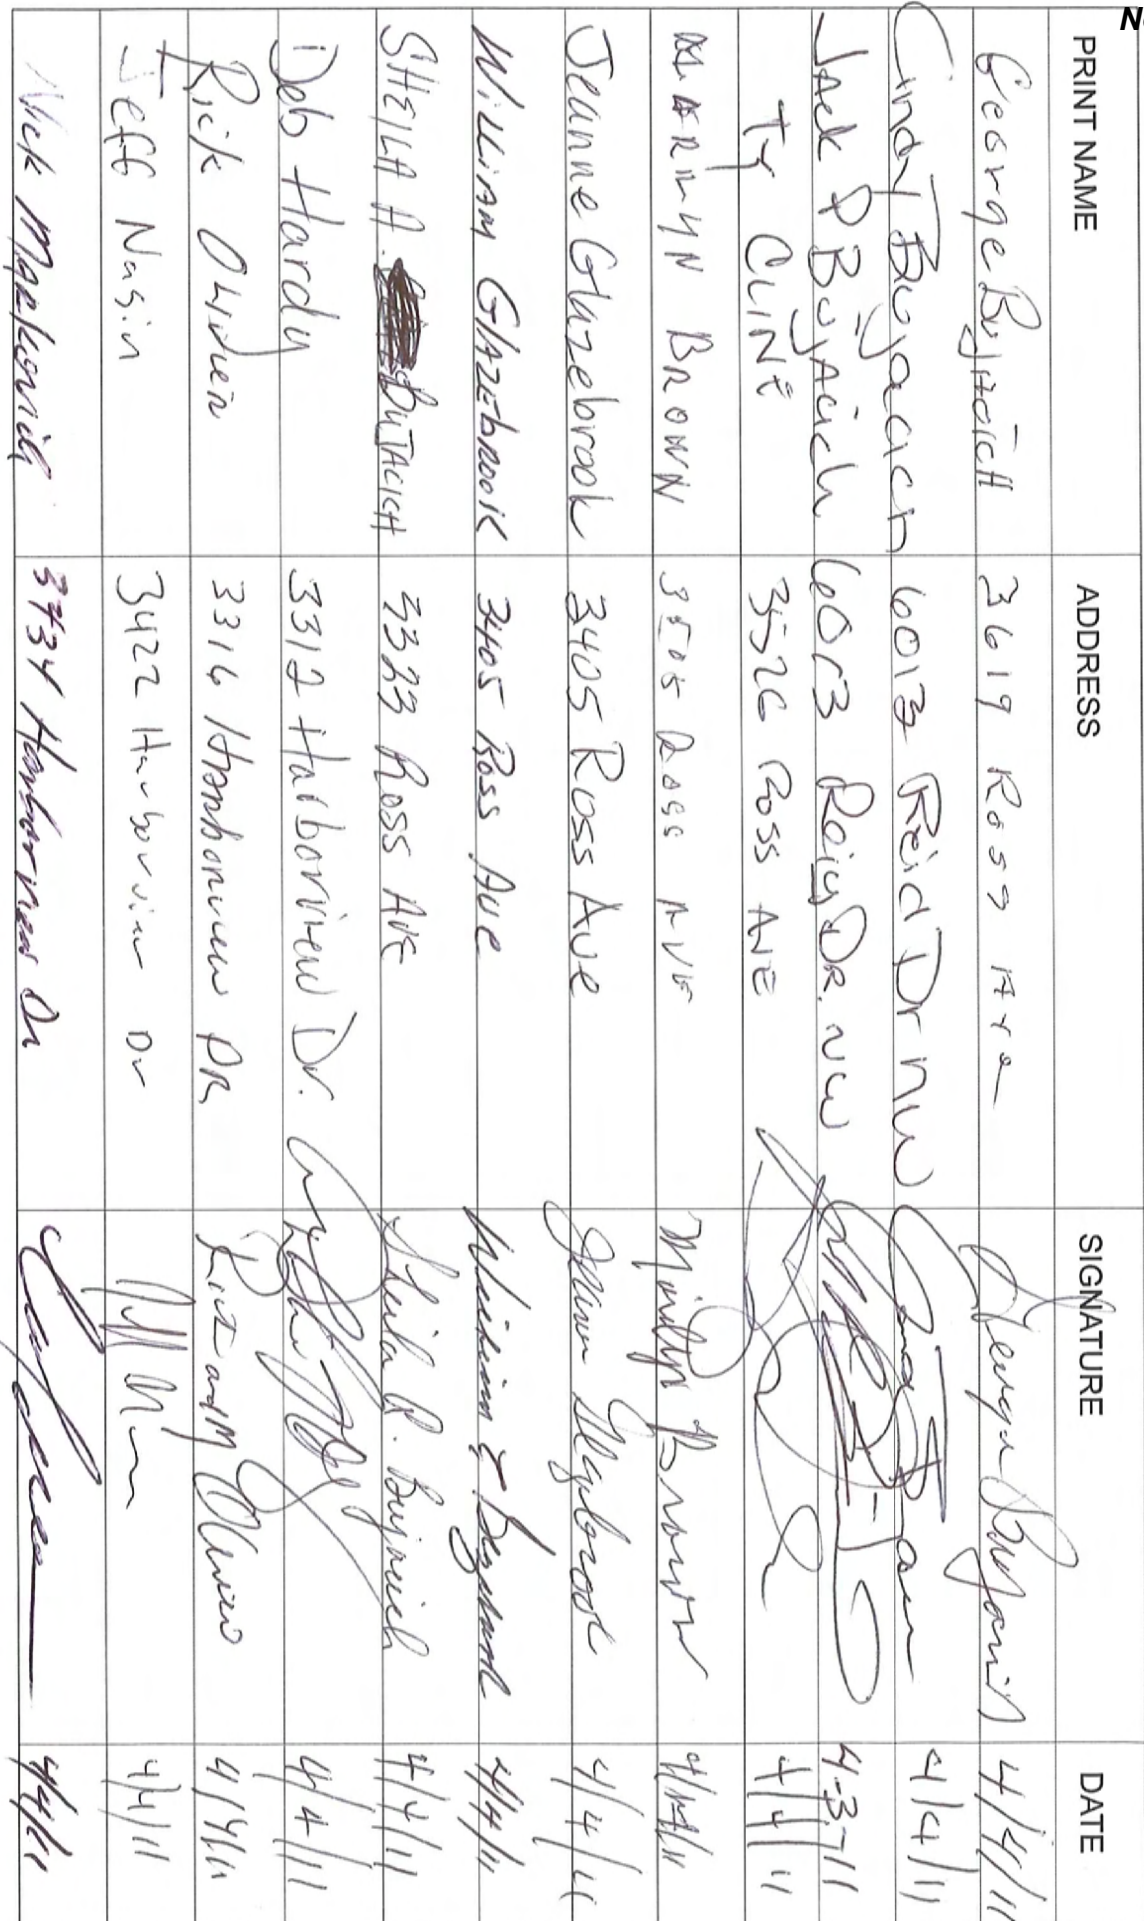 N
PRINT NAME ADDRESS SIGNATURE DATE
George Bujacich 3619 Ross Ave George Bujacich 4/4/11
Cindy Bujacich 6013 Reid Dr NW 4/4/11
Jack P Bujacich 6013 Reid DR. NW 4-3-11
Ty CLINE 3526 Ross AVE 4/4/11
MARILYN BROWN 3505 Ross AVE Marilyn Brown 4/4/11
Jeanne Glazebrook 3405 Ross Ave Jeanne Glazebrook 4/4/11
William GlAZEbrook 3405 Ross Ave 4/4/11
SHEILA A. BUJACICH 3323 Ross AVE Sheila A. Bujacich 4/4/11
Deb Hardy 3312 Harborview Dr. 4/4/11
Rick 3316 Harborview DR 4/4/11
Jeff Nasin 3422 Harborview Dr 4/4/11
Nick Markovich Harborview Dr 4/4/11